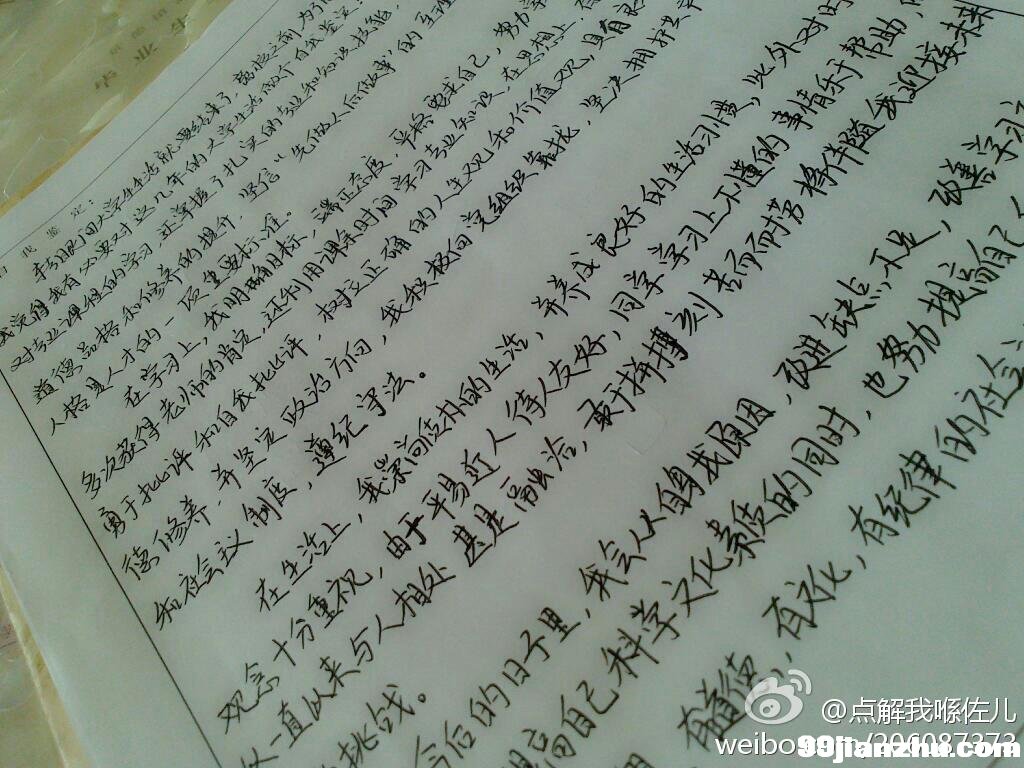 自我鉴定:
转眼间大学生生活就要结束了,离校之前为了
我觉得我有必要对这几年的大学生生活做个自我鉴定:
对专业课程的学习,还掌握了扎实的专业和知识技能,
道德品格和修养的提升,坚信“先做人后做事”的至理
人格是人才的一项重要标准。
在学习上,我明确目标,端正态度,严格要求自己,努力学
多次获得老师的肯定,还利用课余时间学习专业知识,在思想上,
勇于批评和自我批评,树立正确的人生观和价值观,具有良
德修养,并坚定政治方向,我积极向党组织靠拢,坚决拥护共
和社会议制度,遵纪守法。
在生活上,我崇尚质朴的生活,并养成良好的生活习惯,此外对时
观念十分重视,由于平易近人待人友好,同学学习上不懂的事情乐于帮助,
一直以来与人相处甚是融洽,敢于拼搏刻苦而耐劳将伴随我迎接未
挑战。
今后的日子里,我会从自身找原因,改进缺点,不足,改善学习
提高自己科学文化素质的同时,也努力提高自己
有道德,有文化,有纪律的社会
@点解我喺佐儿
weibo.com/206087373
99jianzhu.com